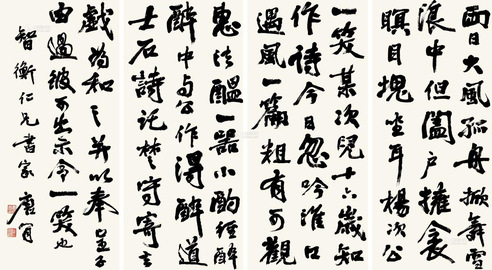 兩日大風孤舟掀舞雪
浪中但闔户擁衾
瞑目塊坐耳楊次公
一笑某次兒十六歲知
作詩今日忽吟淮口
遇風一篇粗有可觀
惠法醞一器小酌徑醉
醉中與公作得醉道
士石詩託楚守寄去
戲為和之并以奉呈子
由過彼可出示令一笑也
智衡仁兄書家
唐肯